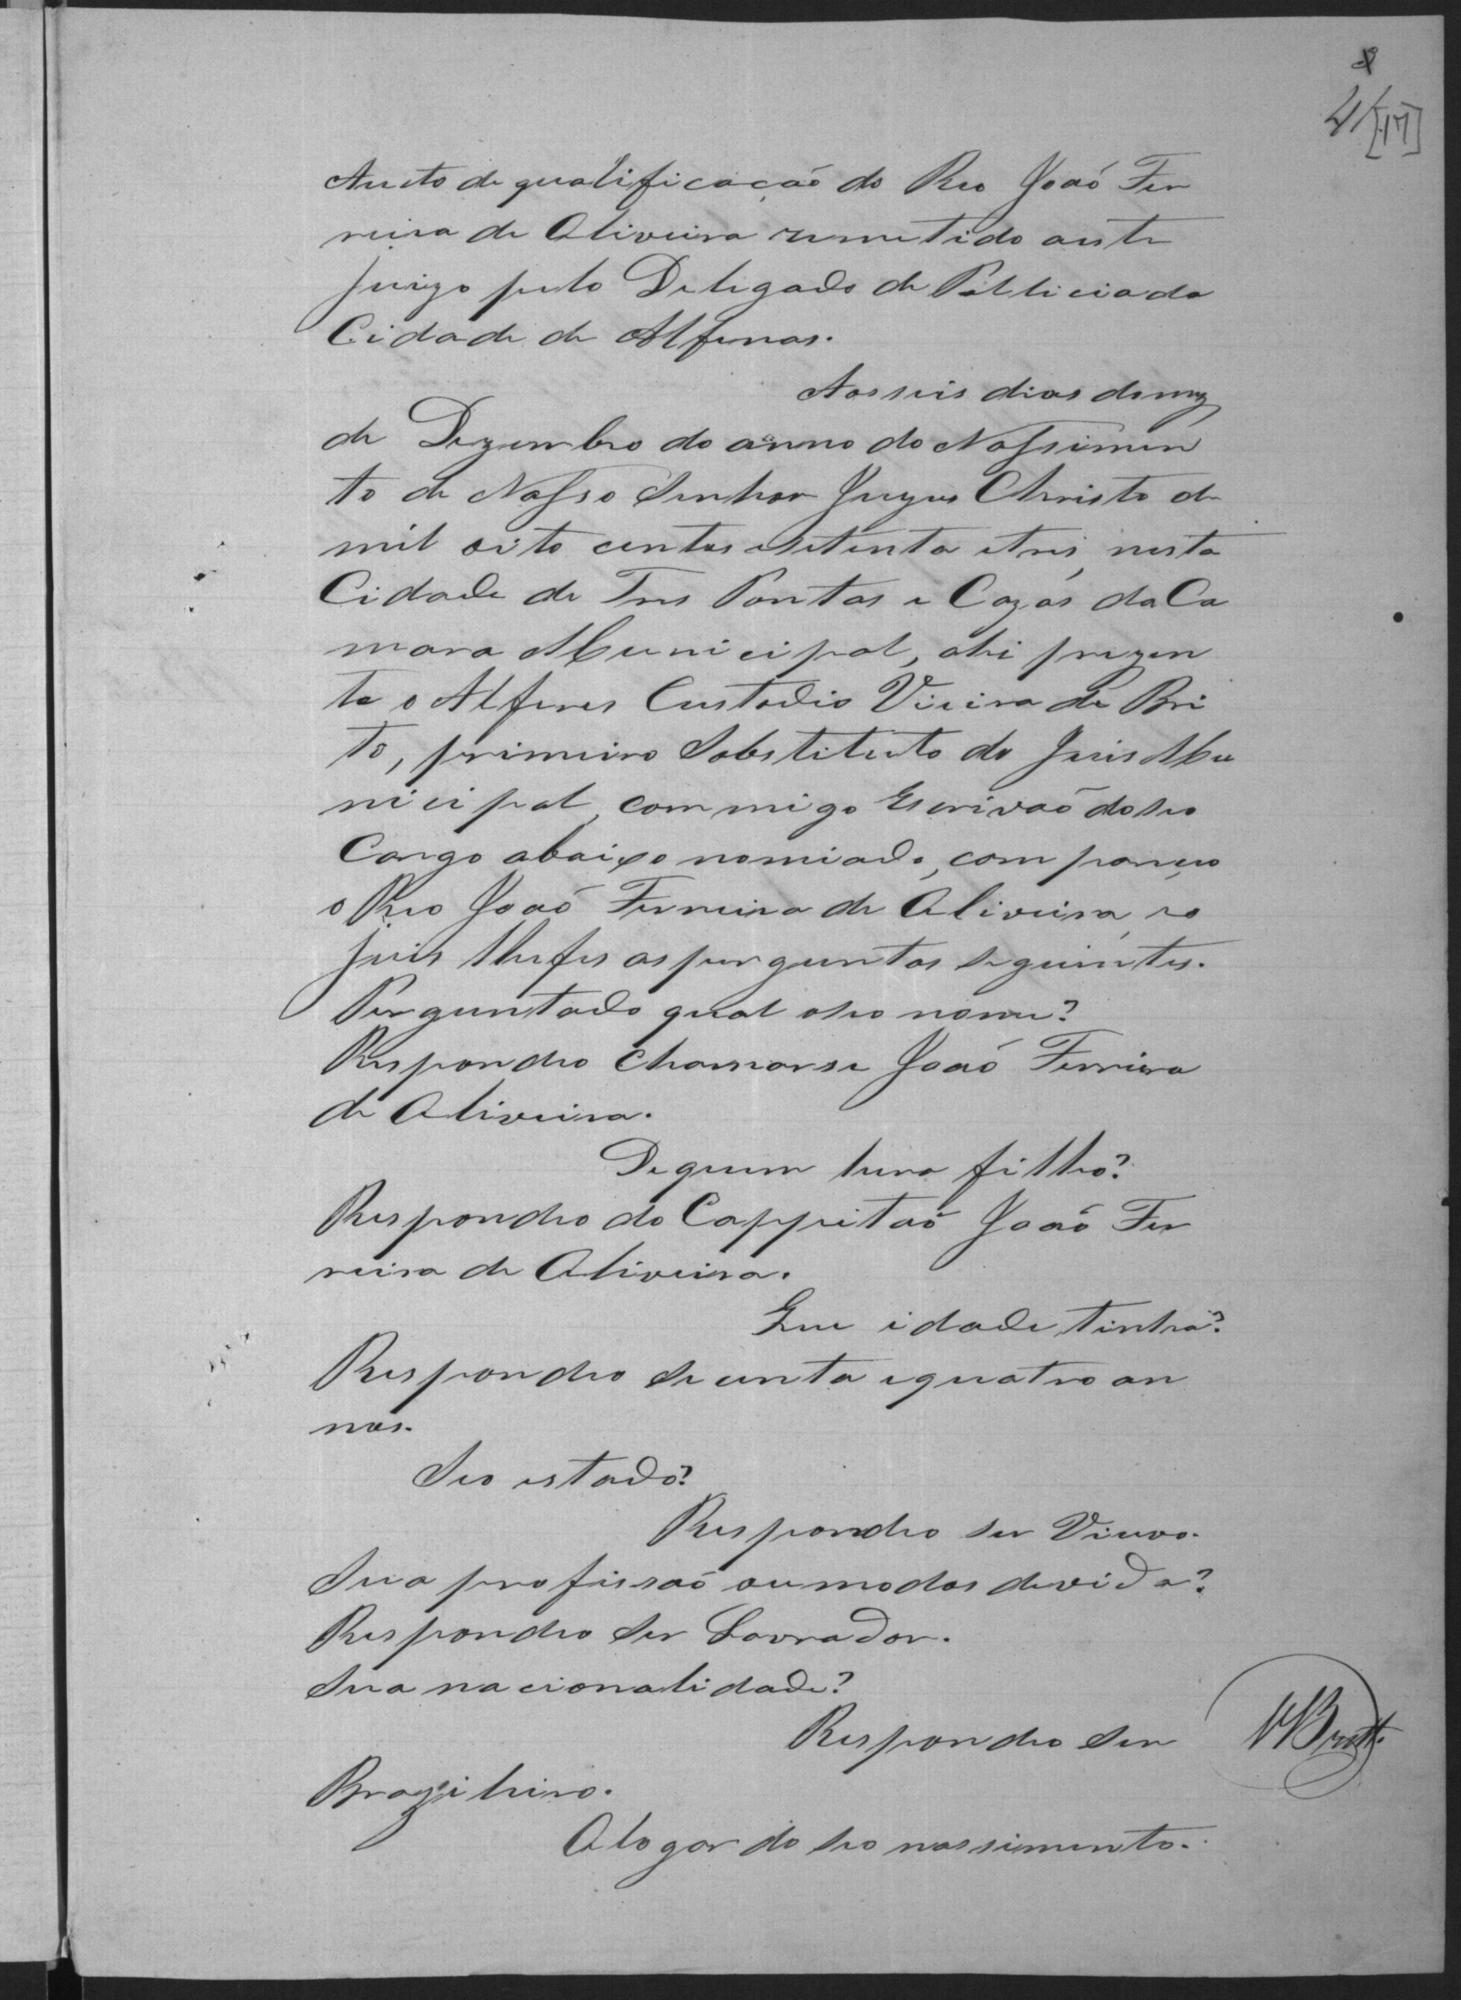 4 [17]
Aucto de qualificação do Reo João Fer
reira de Oliveira remetido aeste
juizo pelo Deligado de Pulliciada
Cidade de Alfenas.
Aos seis dias do mez
de Dezembro do anno do Nassimen
to de Nosso Senhor Jezus Christo de
mil oito centos e setenta e tres, nesta
Cidade de Tres Pontas e Cazas da Ca
mara Municipal, ahi prezen
te o Alferes Custodio Vieira de Bri
to, primeiro Sobstituto do Juis Mu
nicipal, commigo Escrivão do seo
Cargo abaixo nomiado, compareceo
o Reo João Ferreira de Oliveira, e o
juis lhe fes as perguntas seguintes.
Perguntado qual o seo nome?
Respondeo chamarse João Ferreira
de Oliveira.
De quem hera filho?
Respondeo do Cappitão João Fer
reira de Oliveira.
Que idade tinha?
Respondeo secenta e quatro an
nos.
Seo estado?
Respondeo ser Viuvo.
Sua profissão ou modos de vida?
Respondeo ser Lavrador.
Sua nacionalidade?
Respondeo ser
Brazileiro.
O logar do seo nassimento.
VBritto